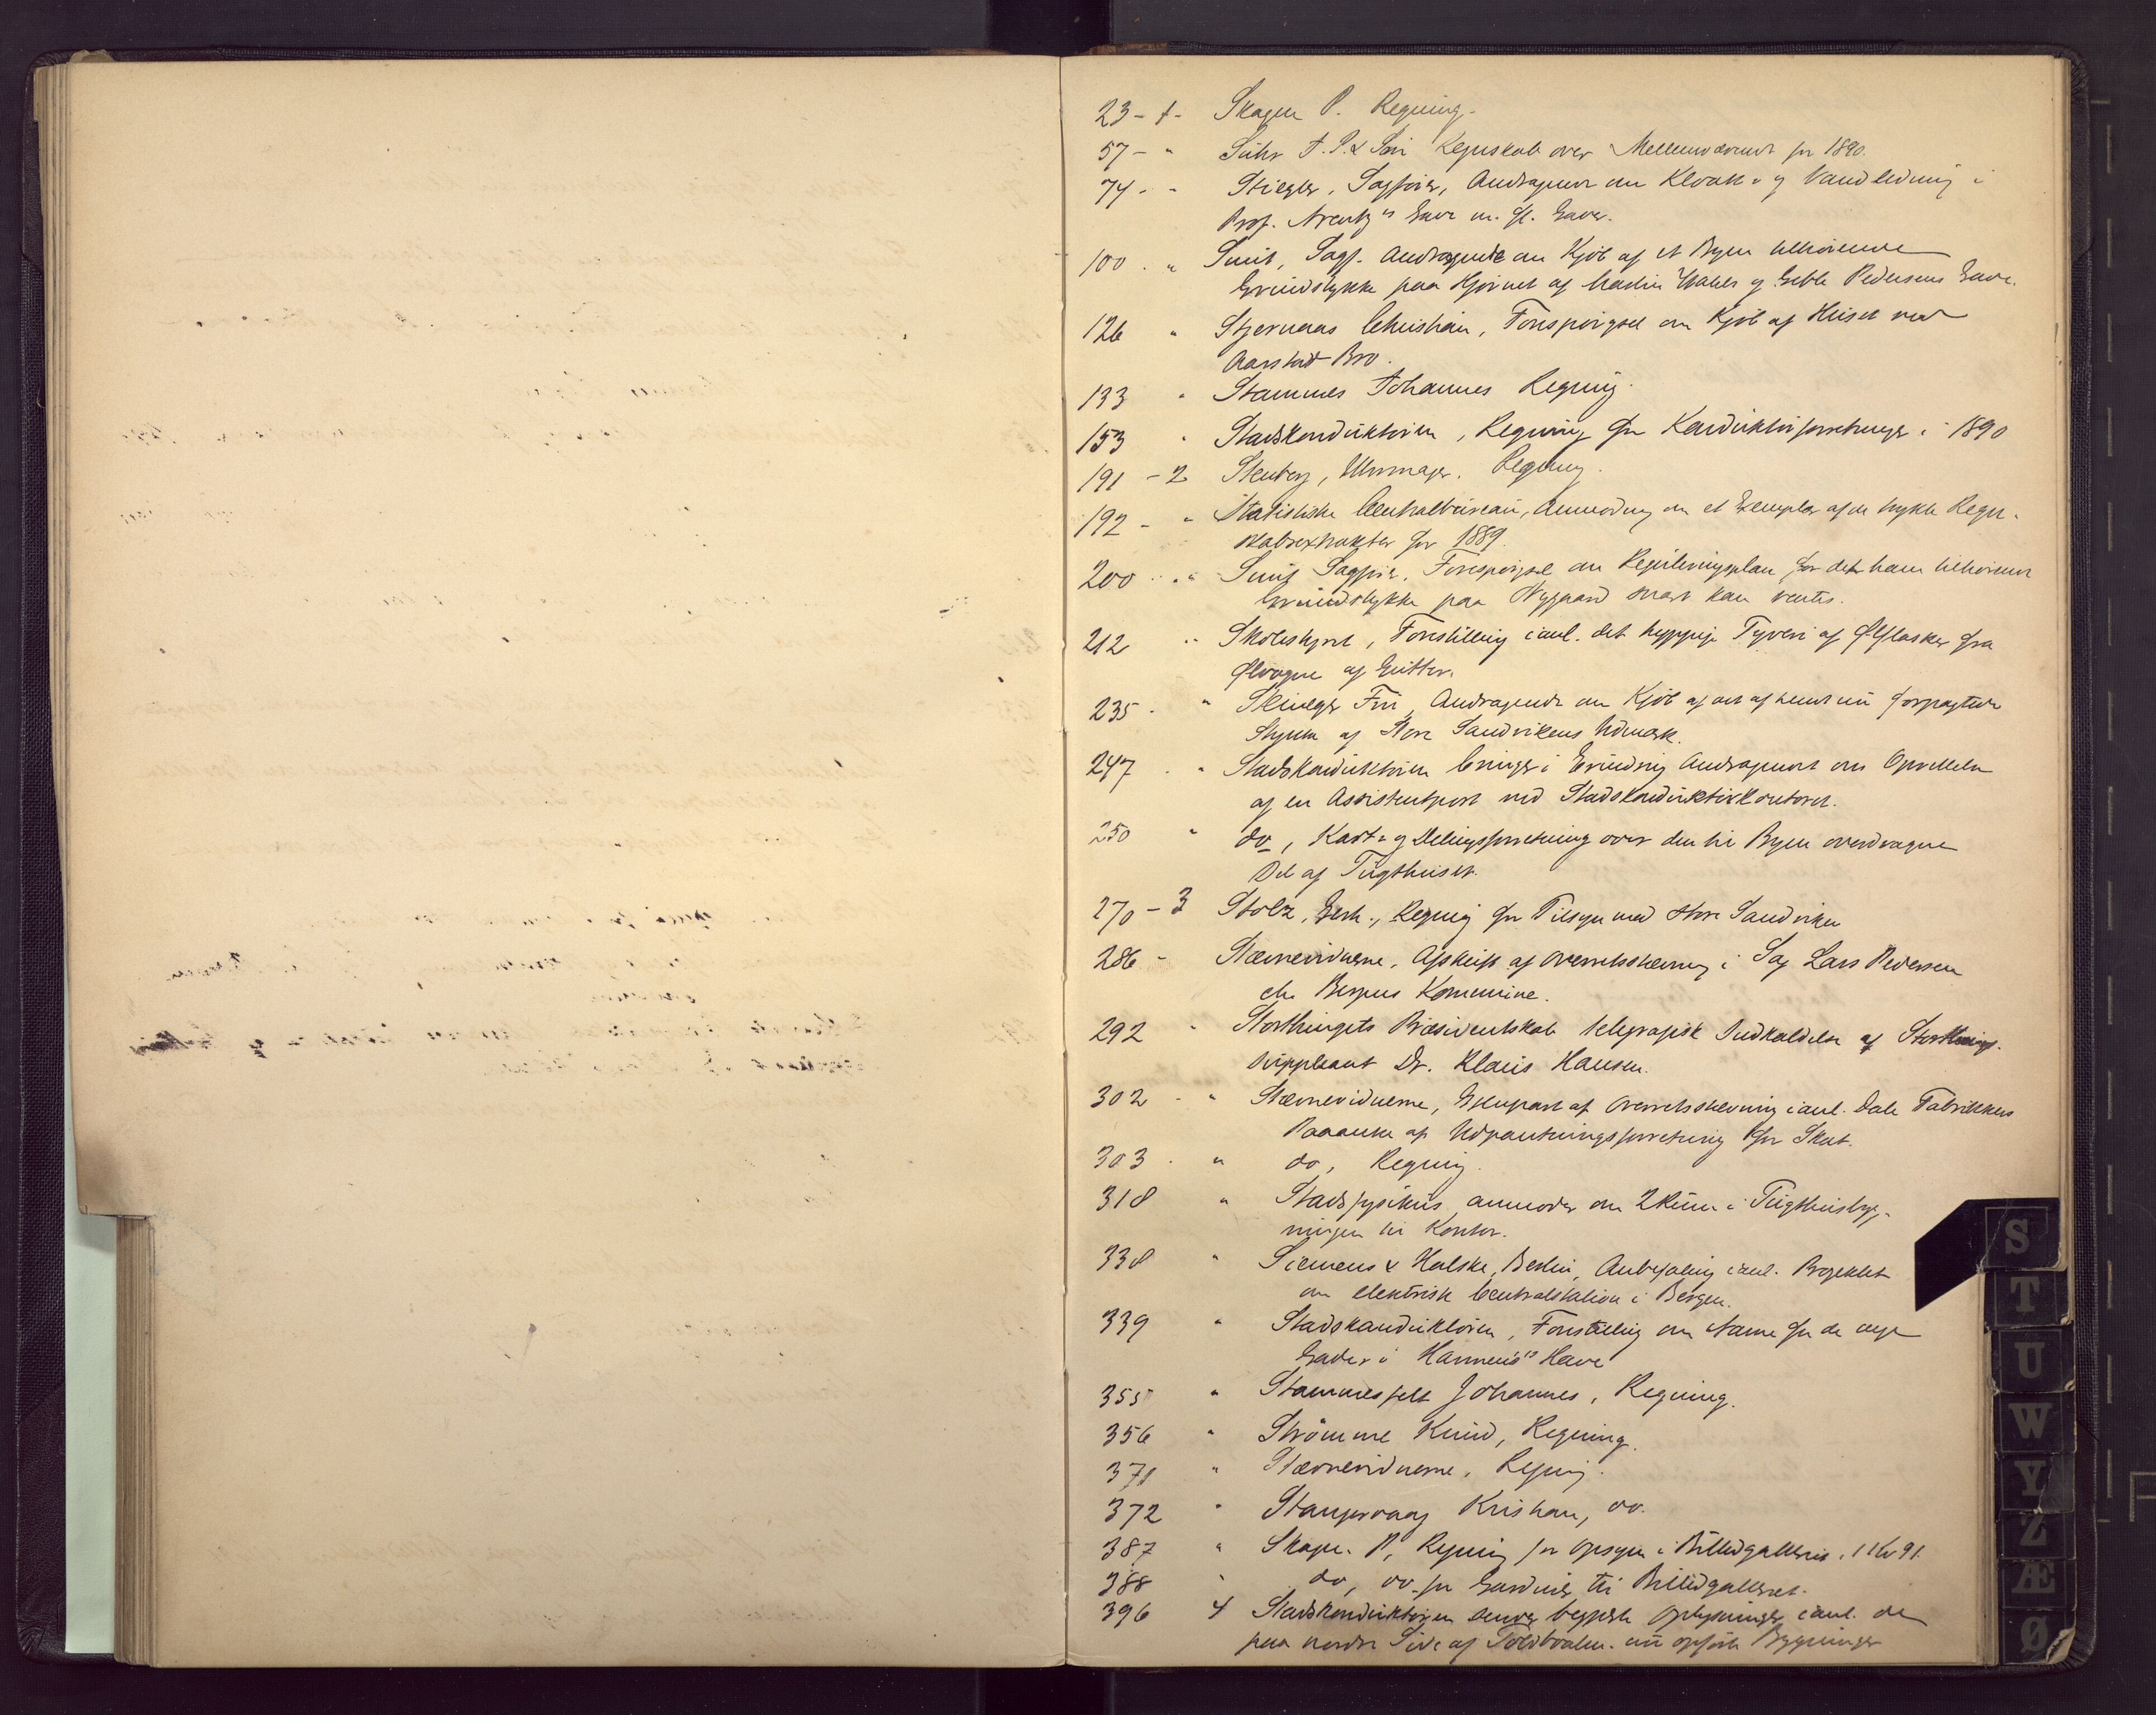 23 - 1 - Skagen P. Regning.
57 - " Suhr J. P. & Søn Regnskab over Mellemværendet for 1890.
74 - - Stiegler, Sagfører, Andragende om Kloak- og Vandledning i
Prof. Arentz's Gade m. fl. Gader.
100 - " Smit, Sagf. Andragende om Kjøb af et Byen tilhørende
Grundstykke paa Hjørnet af Martin Vahls og Geble Pedersens Gade.
126 " Stjernaas Christian, Forespørgsel om Kjøb af Huset ved
Aarstad Bro.
133 " Stammes Johannes Regning.
153 " Stadskonduktøren, Regning for Konduktørforretninger i 1890
191 - 2 Stenberg, Uhrmager. Regning.
192 - " Statistiske Centralbureau, Anmodning om et Exemplar af de trykte Regn-
skabsextrakter for 1889.
200 - " Smit Sagfører, Forespørgsel om Reguleringsplan for det ham tilhørende
Grundstykke paa Nygaard snart kan ventes.
212 " Skolestyret, Forestilling i anl. det hyppige Tyveri af Ølflasker fra
Ølvogne af Gutter.
235 - " Fru, Andragende om Kjøb af det af hende nu forpagtede
Stykke af Store Sandvikens Udmark.
247 - " Stadskonduktøren bringer i Erindring Andragendet om Oprettelse
af en Assistentpost ved Stadskonduktørkontoret.
250 " do, Kart- og Delingsforretning over den til Byen overdragne
Del af Tugthuset.
270 - 3 Stolz, Gerh., Regning for Tilsyn med store Sandviken
286 - Stævnevidnerne, Afskrift af Overretsstævning i Sag Lars Pedersen
ctr. Bergens Kommune.
292 " Storthingets Præsidentskab telegrafisk Indkaldelse af Storthings-
suppleant Dr. Klaus Hansen.
302 - " Stævnevidnerne, Gjenpart af Overretsstævning i anl. Dale Fabrikkers
Paaanke af Udpantningsforretning for Skat.
303 - " do, Regning.
318 " Stadsfysikus anmoder om 2 Rum i Tugthusbyg-
ningen til Kontor.
338 " Siemens & Halske, Berlin, Anbefaling i anl. Projektet
om elektrisk Centralstation i Bergen.
339 " Stadskonduktøren, Forestilling om Navne for de nye
Gader i Hanneviis' Have
355 " Stammesfelt Johannes, Regning.
356 " Strømme Knud, Regning.
371 " Stævnevidnerne, Regning.
372 " Stangervaag Kristian, do.
387 " Skagen P, Regning for Opsyn i Billedgalleriet, 1 Kv 91.
388 " do, do for Gardiner til Billedgalleriet.
396 4 Stadskonduktøren sender begjærte Oplysninger i anl. de
paa nordre Side af Toldbodalm. nu opførte Bygninger
S
T
U
W
Y
Z
Æ
Ø